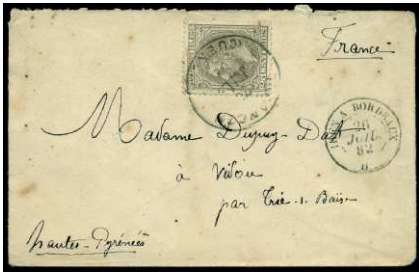 France
IRUN A BORDEAUX
26
JUIL
82
Madame Dupuy-Dat
à Vidou
par Trie-s-Baïse
Hautes-Pyrénées